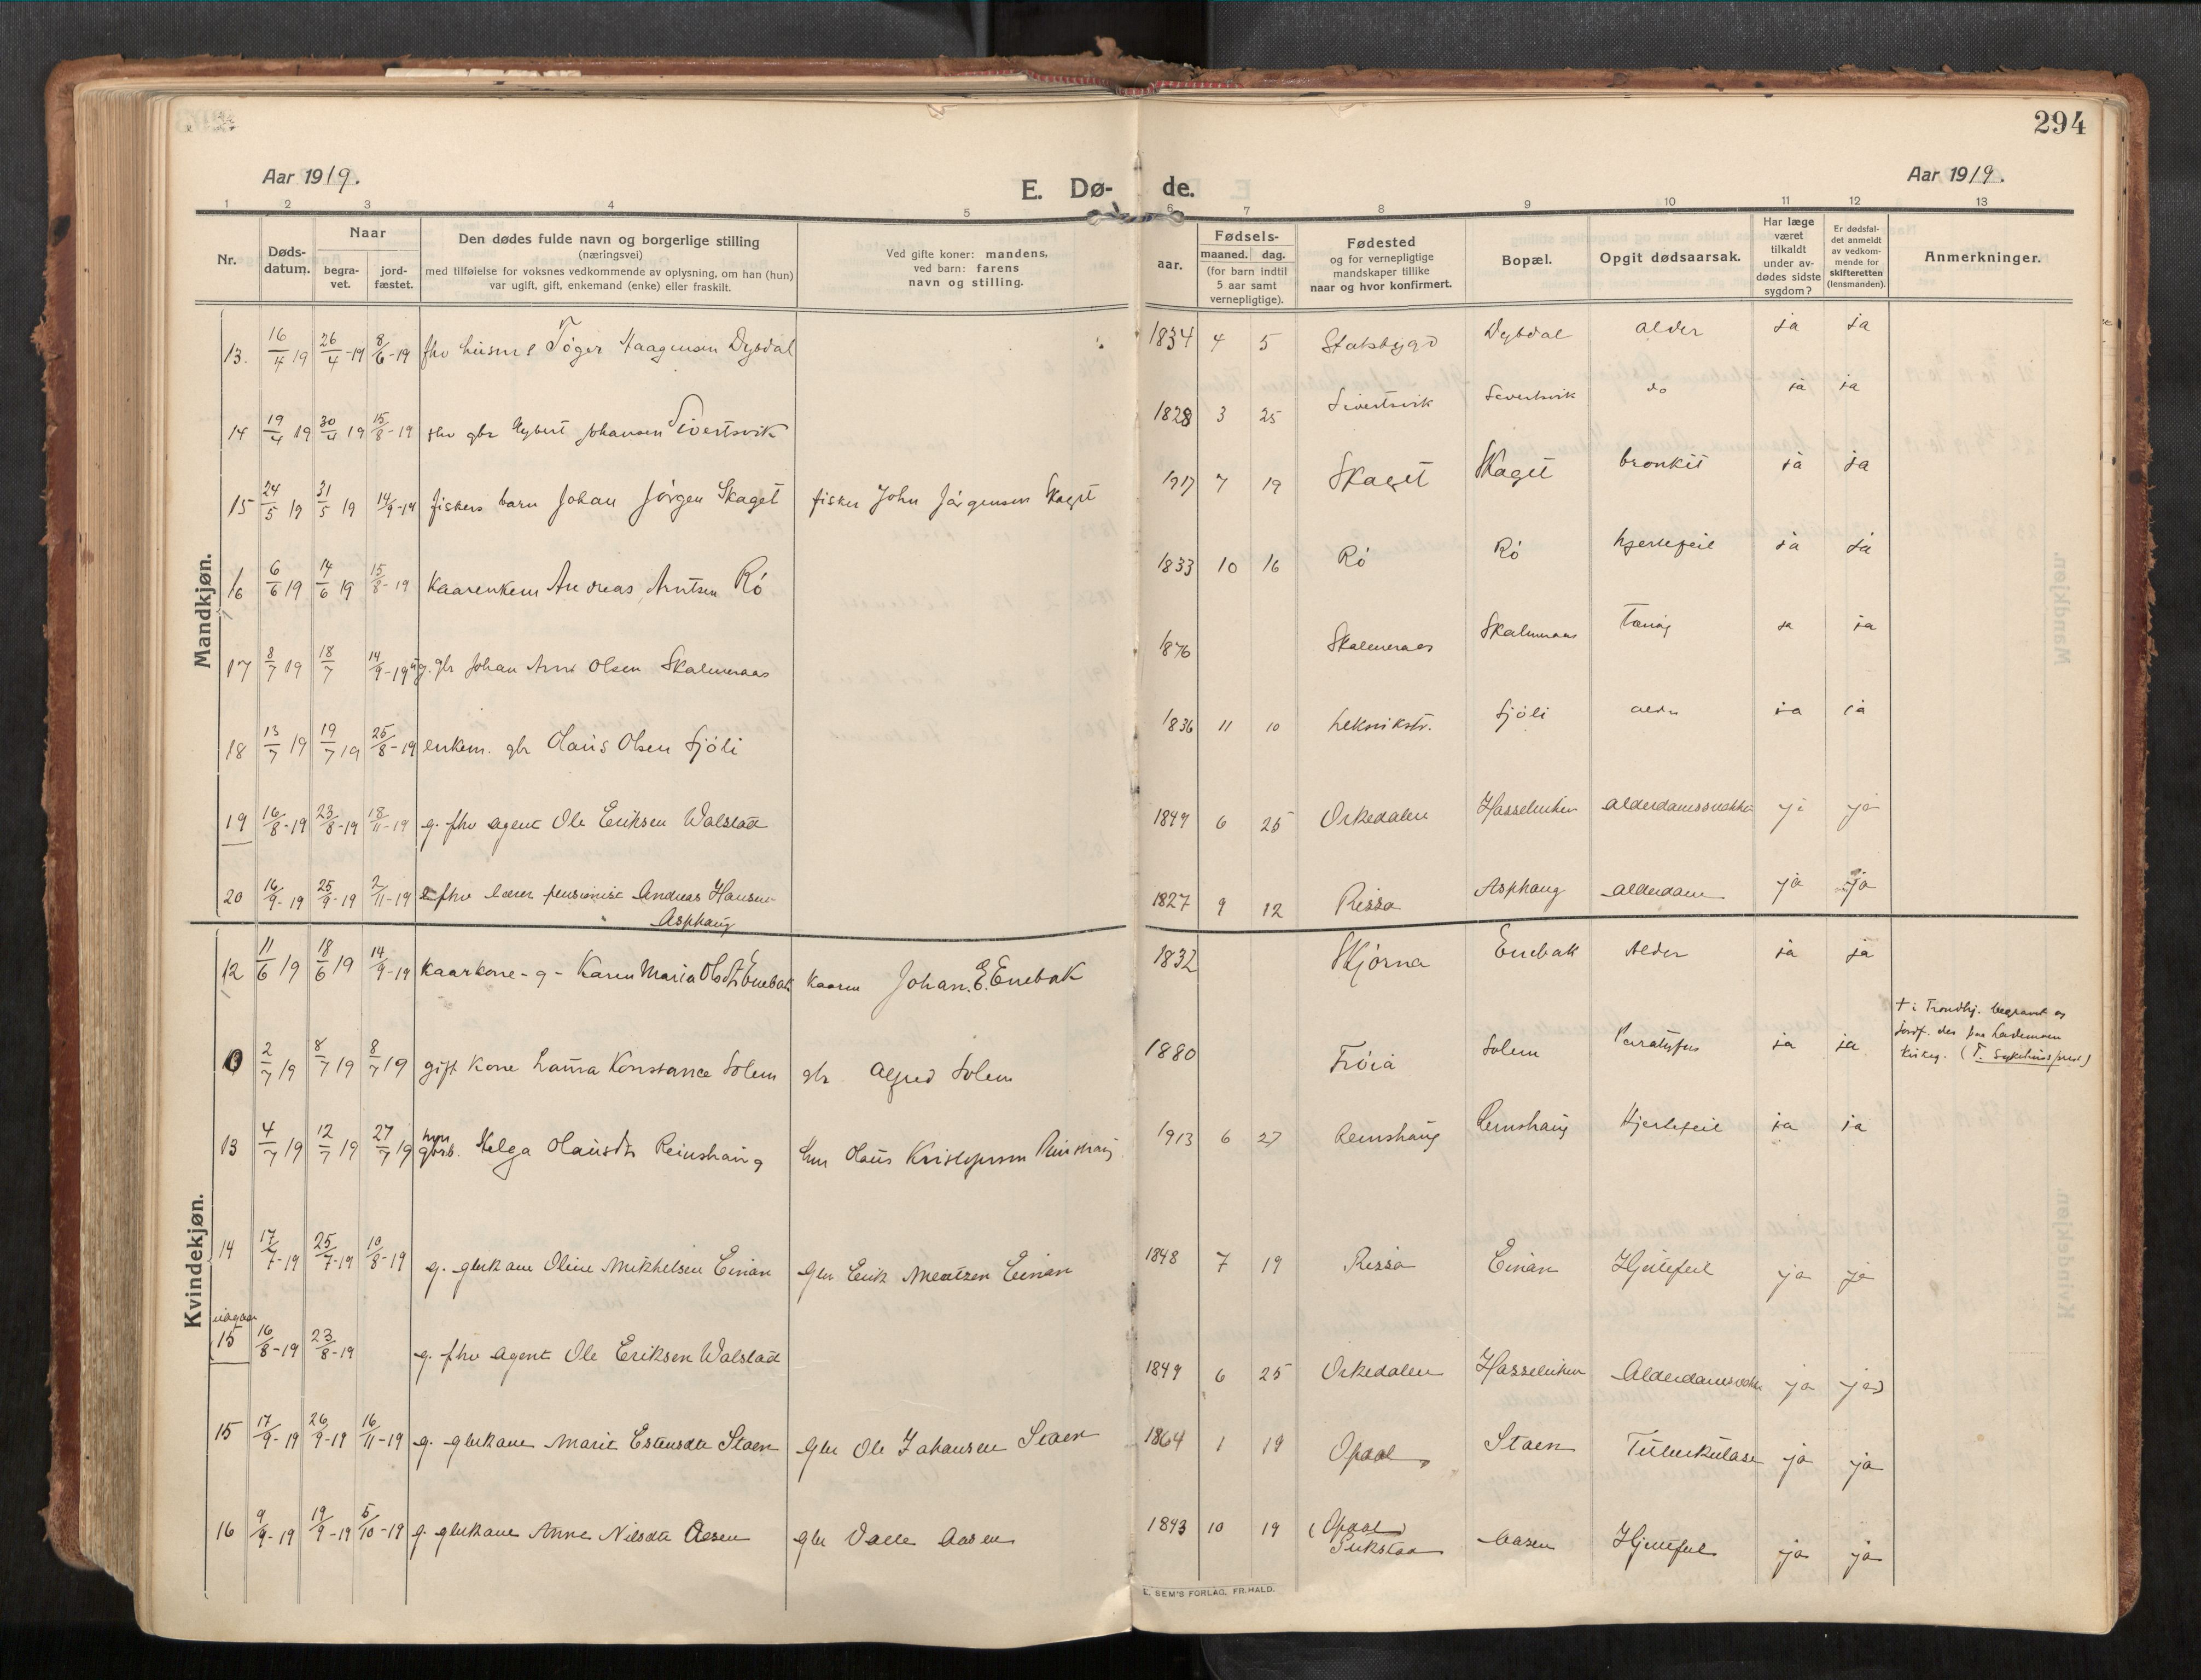 294
Aar 1919. E. Dø- de. Aar 1919.
1 2 3 4 5 6 7 8 9 10 11 12 13
Nr.
Døds-
datum.
Naar
begra-
vet.
jord-
fæstet.
Den dødes fulde navn og borgerlige stilling
(næringsvei)
med tilføielse for voksnes vedkommende av oplysning, om han (hun)
var ugift, gift, enkemand (enke) eller fraskilt.
Ved gifte koner: mandens,
ved barn: farens
navn og stilling.
Fødsels-
aar.
maaned. dag.
(for barn indtil
5 aar samt
vernepligtige).
Fødested
og for vernepligtige
mandskaper tillike
naar og hvor konfirmert.
Bopæl.
Opgit dødsaarsak.
Har læge
været
tilkaldt
under av-
dødes sidste
sygdom?
Er dødsfal-
det anmeldt
av vedkom-
mende for
skifteretten
(lensmanden).
Anmerkninger.
Mandkjøn.
13. 16/4 19 26/4-19 8/6-19 fhv husm Töger Haagensen Dybdal 1834 4 5 Stadsbygd Dybdal alder ja ja
14 19/4 19 30/4 19 15/8-19 fhv gbr Johansen Sivertsvik 1828 3 25 Sivertsvik Sivertsvik do ja ja
15 24/5 19 31/5 19 14/9-19 fiskers barn Johan Jörgen Skaget fisker John Jörgensen Skaget 1917 7 19 Skaget Skaget bronkit ja ja
16 6/6 19 14/6 19 15/8-19 Kaarenkem Andreas Arntsen Rö 1833 10 16 Rö Rö hjertefeil ja ja
17 8/7 19 18/7 14/9-19 g. gbr Johan Arnt Olsen Skalmeraas 1876 Skalmeraas Skalmeraas ja ja
18 13/7 19 19/7 19 25/8-19 enkem. gbr Olaus Olsen Sjöli 1836 11 10 Leksvikstr. Sjöli alder ja ja
19 16/8-19 23/8-19 18/11-19 g. fhv agent Ole Eriksen Walstad 1849 6 25 Orkedalen Hasselviken alderdomssvakhet ja ja
20 16/9-19 25/9-19 2/11-19 e fhv lærer pensionist Andreas Hansen
Asphaug 1827 9 12 Rissa Asphaug alderdom ja ja
Kvindekjøn.
12 11/6 19 18/6 19 14/9-19 Kaarkone - g - Karen Maria Olsdtr Enebak Kaarm Johan. E. Enebak 1832 Skjörna Enebak Alder ja ja
0 2/7 19 8/7 19 8/7 19 gift Kone Laura Konstance Solem gbr Alfred Solem 1880 Fröia Solem Paratyfus ja ja + i Trondhj. begravet og
jordf. der paa Lademoen
Kirkeg. (T. Sykehuspræst)
13 4/7 19 12/7 19 27/7 19 Helga Olausdtr Reinshaug Olaus Kristofersen Reinshaug 1913 6 27 Reinshaug Reinshaug Hjertefeil ja ja
14 17/7-19 25/7-19 10/8-19 g. gbrkone Oline Mikkelsen Einan Gbr Erik Mentzen Einan 1848 7 19 Rissa Einan Hjertefeil ja ja
utgaar
(15 16/8-19 23/8-19 g. fhv agent Ole Eriksen Walstad 1849 6 25 Orkedalen Hasselviken Alderdomsvakhet ja ja)
15 17/9-19 26/9-19 16/11-19 g. gbrkone Marit Estensdtr Staen Gbr Ole Johansen Staen 1864 1 19 Opdal Staen Tuberkulose ja ja
16 9/9-19 19/9-19 5/10-19 g. gbrkone Anne Nilsdtr Aasen gbr Aasen 1843 10 19 (Opdal) Aasen Hjertefeil ja ja
L. SEM'S FORLAG, FR.HALD.